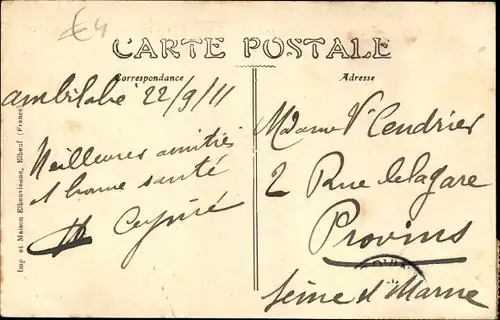 €4
CARTE POSTALE
Correspondance
Adresse
Ambilobé 22/9/11
Meilleures amitiés
& bonne santé
Madame Vve Cendrier
2 Rue de la Gare
Provins
Seine & Marne
Imp et Maison Elbeuvienne, Elbeuf (France)